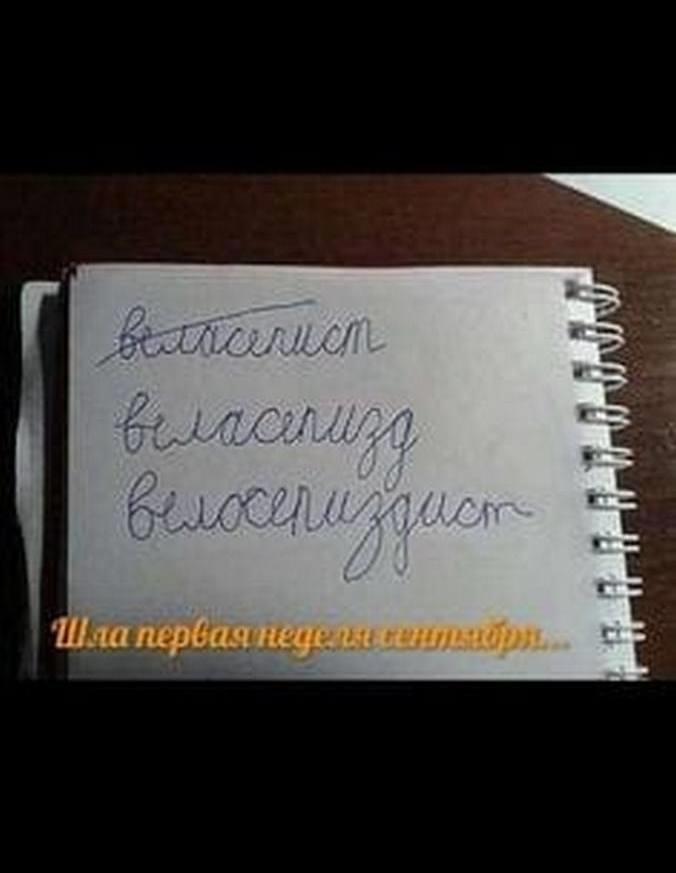 веласепист
веласепизд
велосепиздист
Шла первая неделя сентября...